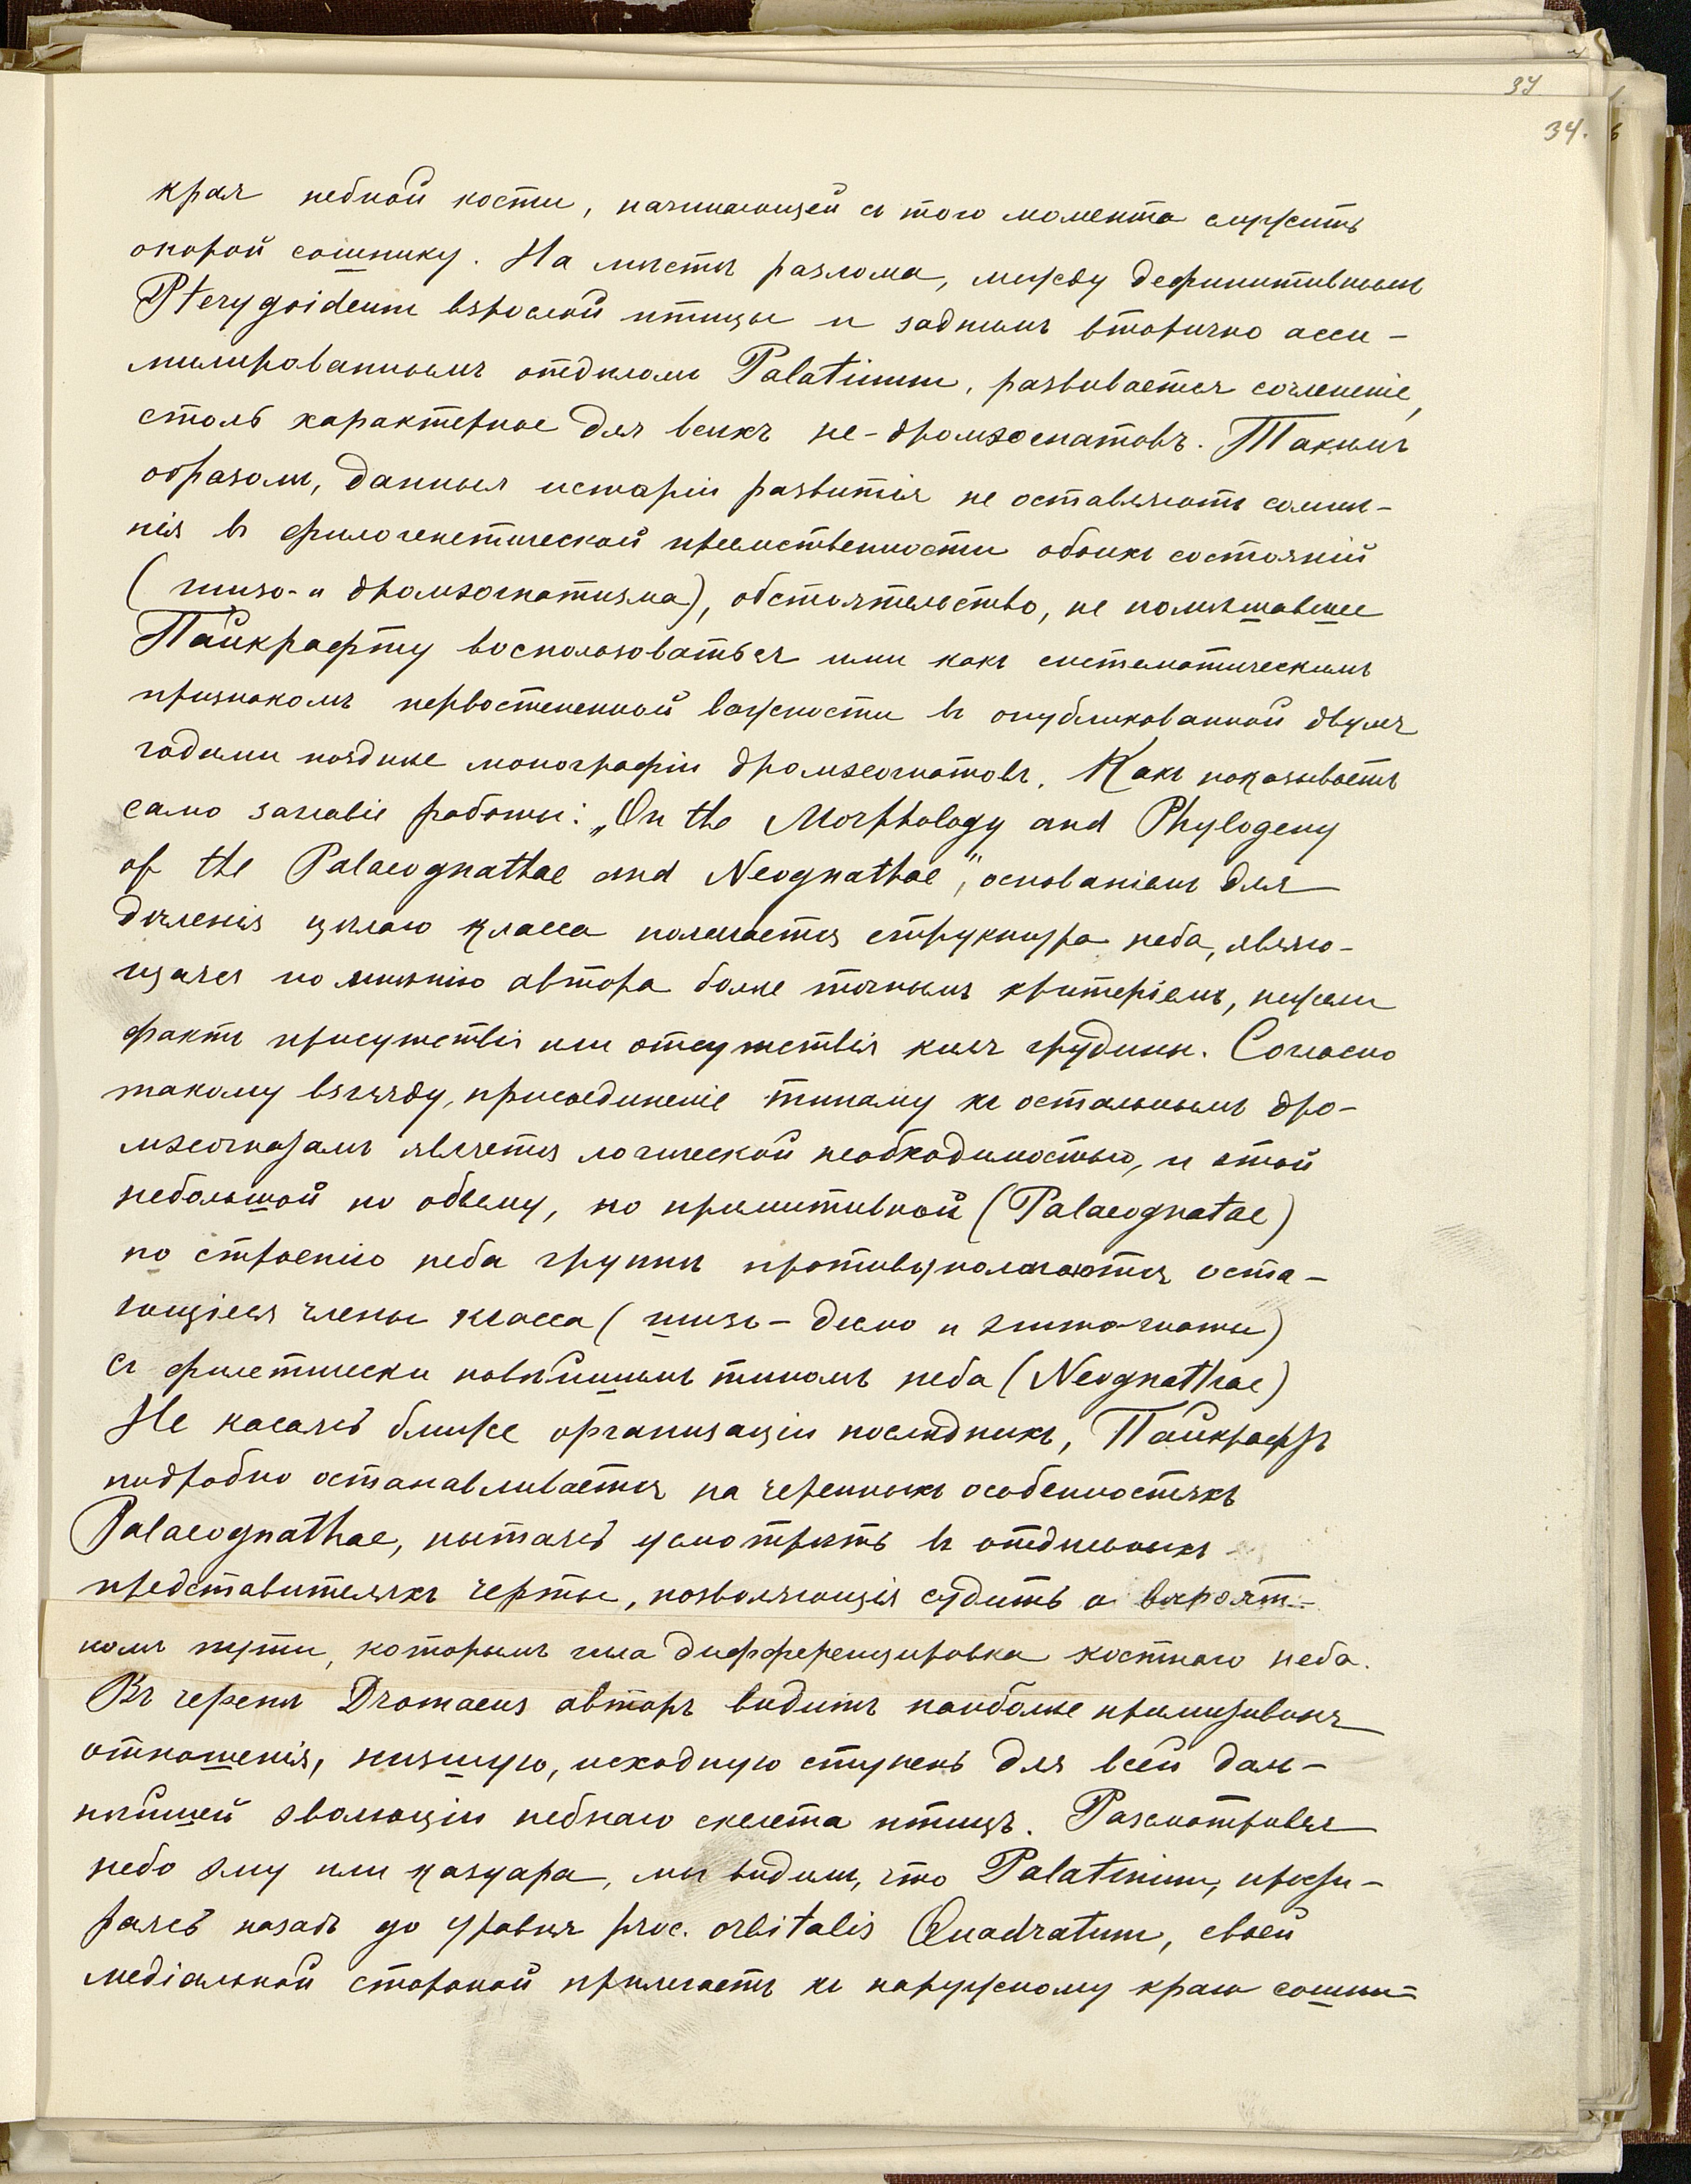 37
34.
края небной кости, начинающей съ того момента служить
опорой сошнику. На мѣстѣ разлома, между дефинитивнымъ
Pterygoideum взрослой птицы и заднимъ вторично асси-
милированнымъ отдѣломъ Palatinum, развивается сочлененіе,
столь характерное для всѣхъ не-дромэогнатовъ. Такимъ
образомъ, данныя исторіи развитія не оставляютъ сомнѣ-
нія въ филогенетической преемственности обоихъ состояній
(шизо- и дромэогнатизма), обстоятельство, не помѣшавшее
Пайкрафту воспользоваться ими какъ систематическимъ
признакомъ первостепенной важности въ опубликованной двумя
годами позднѣе монографіи дромэогнатовъ. Какъ показываетъ
само заглавіе работы: „On the Morphology and Phylogeny
of the Palaeognathae and Neognathae", основаніемъ для
дѣленія цѣлаго класса полагается структура неба, являю-
щаяся по мнѣнію автора болѣе точнымъ критеріемъ, нежели
фактъ присутствія или отсутствія киля грудины. Согласно
такому взгляду, присоединеніе тинаму къ остальнымъ дро-
мэогнатамъ является логической необходимостью, и этой
небольшой по объему, но примитивной (Palaeognatae)
по строенію неба группѣ противуполагаются оста-
ющіеся члены класса (шизо- десмо и эгитогнаты)
съ филетически новѣйшимъ типомъ неба (Neognathae)
Не касаясь ближе организаціи послѣднихъ, Пайкрафтъ
подробно останавливается на черепныхъ особенностяхъ
Palaeognathae, пытаясь усмотрѣть въ отдѣльныхъ
представителяхъ черты, позволяющія судить о вѣроят-
номъ пути, которымъ шла дифференцировка костнаго неба.
Въ черепѣ Dromaeus авторъ видитъ наиболѣе примитивныя
отношенія, низшую, исходную ступень для всей даль-
нѣйшей эволюціи небнаго скелета птицъ. Разсмотрѣвъ
небо эму или казуара, мы видимъ, что Palatinum, прости-
раясь назадъ до уровня proc. orbitalis Quadratum, своей
медіальной стороной прилегаетъ къ наружному краю сошни-